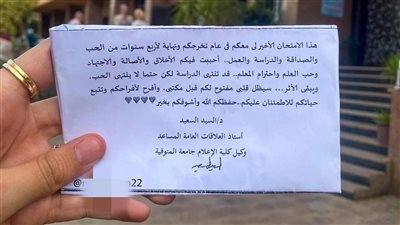 هذا الامتحان الأخير لى معكم فى عام تخرجكم ونهاية لأربع سنوات من الحب
والصداقة والدراسة والعمل.. أحببت فيكم الأخلاق والأصالة والاجتهاد
وحب العلم واحترام المعلم.. قد تنتهى الدراسة لكن حتما لا ينتهى الحب.
ويبقى الأثر... سيظل قلبى مفتوح لكم قبل مكتبى. وأفرح لأفراحكم وتتبع
حياتكم للاطمئنان عليكم..حفظكم الله وأشوفكم بخير🖤🖤🖤🖤
د/السيد السعيد
أستاذ العلاقات العامة المساعد
وكيل كلية الإعلام جامعة المنوفية
22